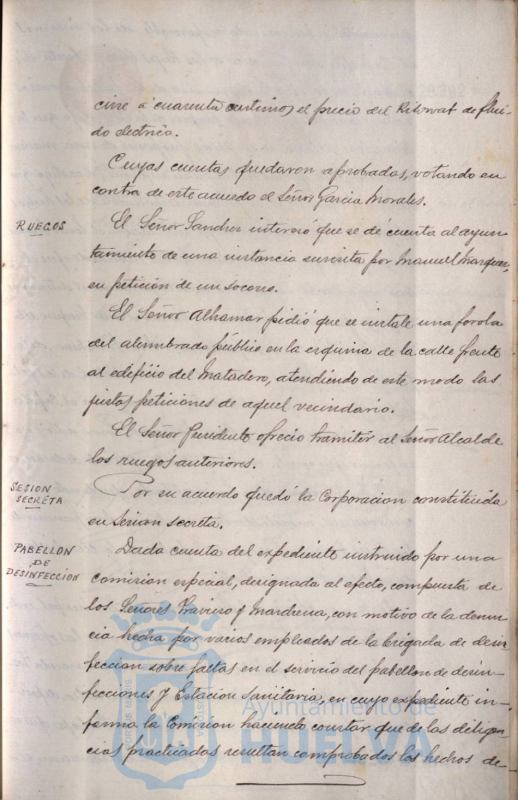 cine a cuarenta centimos el precio del Kilowat de flui-
do electrico.
Cuyas cuentas quedaron aprobadas, votando en
contra de este acuerdo el Señor Garcia Morales.
RUEGOS
El Señor Sanchez interesó que se dé cuenta al ayun-
tamiento de una instancia suscrita por Manuel Marquez,
en petición de un socorro.
El Señor Alhamar pidió que se instale una farola
del alumbrado público en la esquina de la calle frente
al edificio del Matadero, atendiendo de este modo las
justas peticiones de aquel vecindario.
El Señor Presidente ofreció tramitar al Señor Alcalde
los ruegos anteriores.
SESION
SECRETA
Por su acuerdo quedó la Corporacion constituida
en Sesion secreta.
PABELLON
DE
DESINFECCION
Dada cuenta del expediente instruido por una
comision especial, designada al efecto, compuesta de
los Señores y Marchena, con motivo de la denun-
cia hecha por varios empleados de la brigada de desin-
feccion sobre faltas en el servicio del pabellon de desin-
fecciones y Estacion Sanitaria, en cuyo expediente in-
forma la Comision haciendo constar que de las diligen-
cias practicadas resultan comprobados los hechos de-
Ayuntamiento de
HUELVA